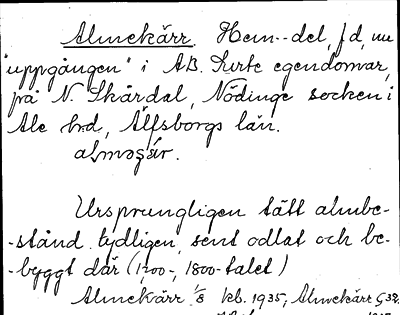 Almekärr. Hem--del, f.d., nu
"uppgången" i AB. Surte egendomar,
på N. Skårdal, Nödinge socken i
Ale hrd, Älfsborgs län.
alməçär.
Ursprungligen tätt almbe-
-stånd tydligen, sent odlat och be-
-byggt där (1700-, 1800-talet)
Almekärr 1/8 kb. 1935, Almekärr G 32.